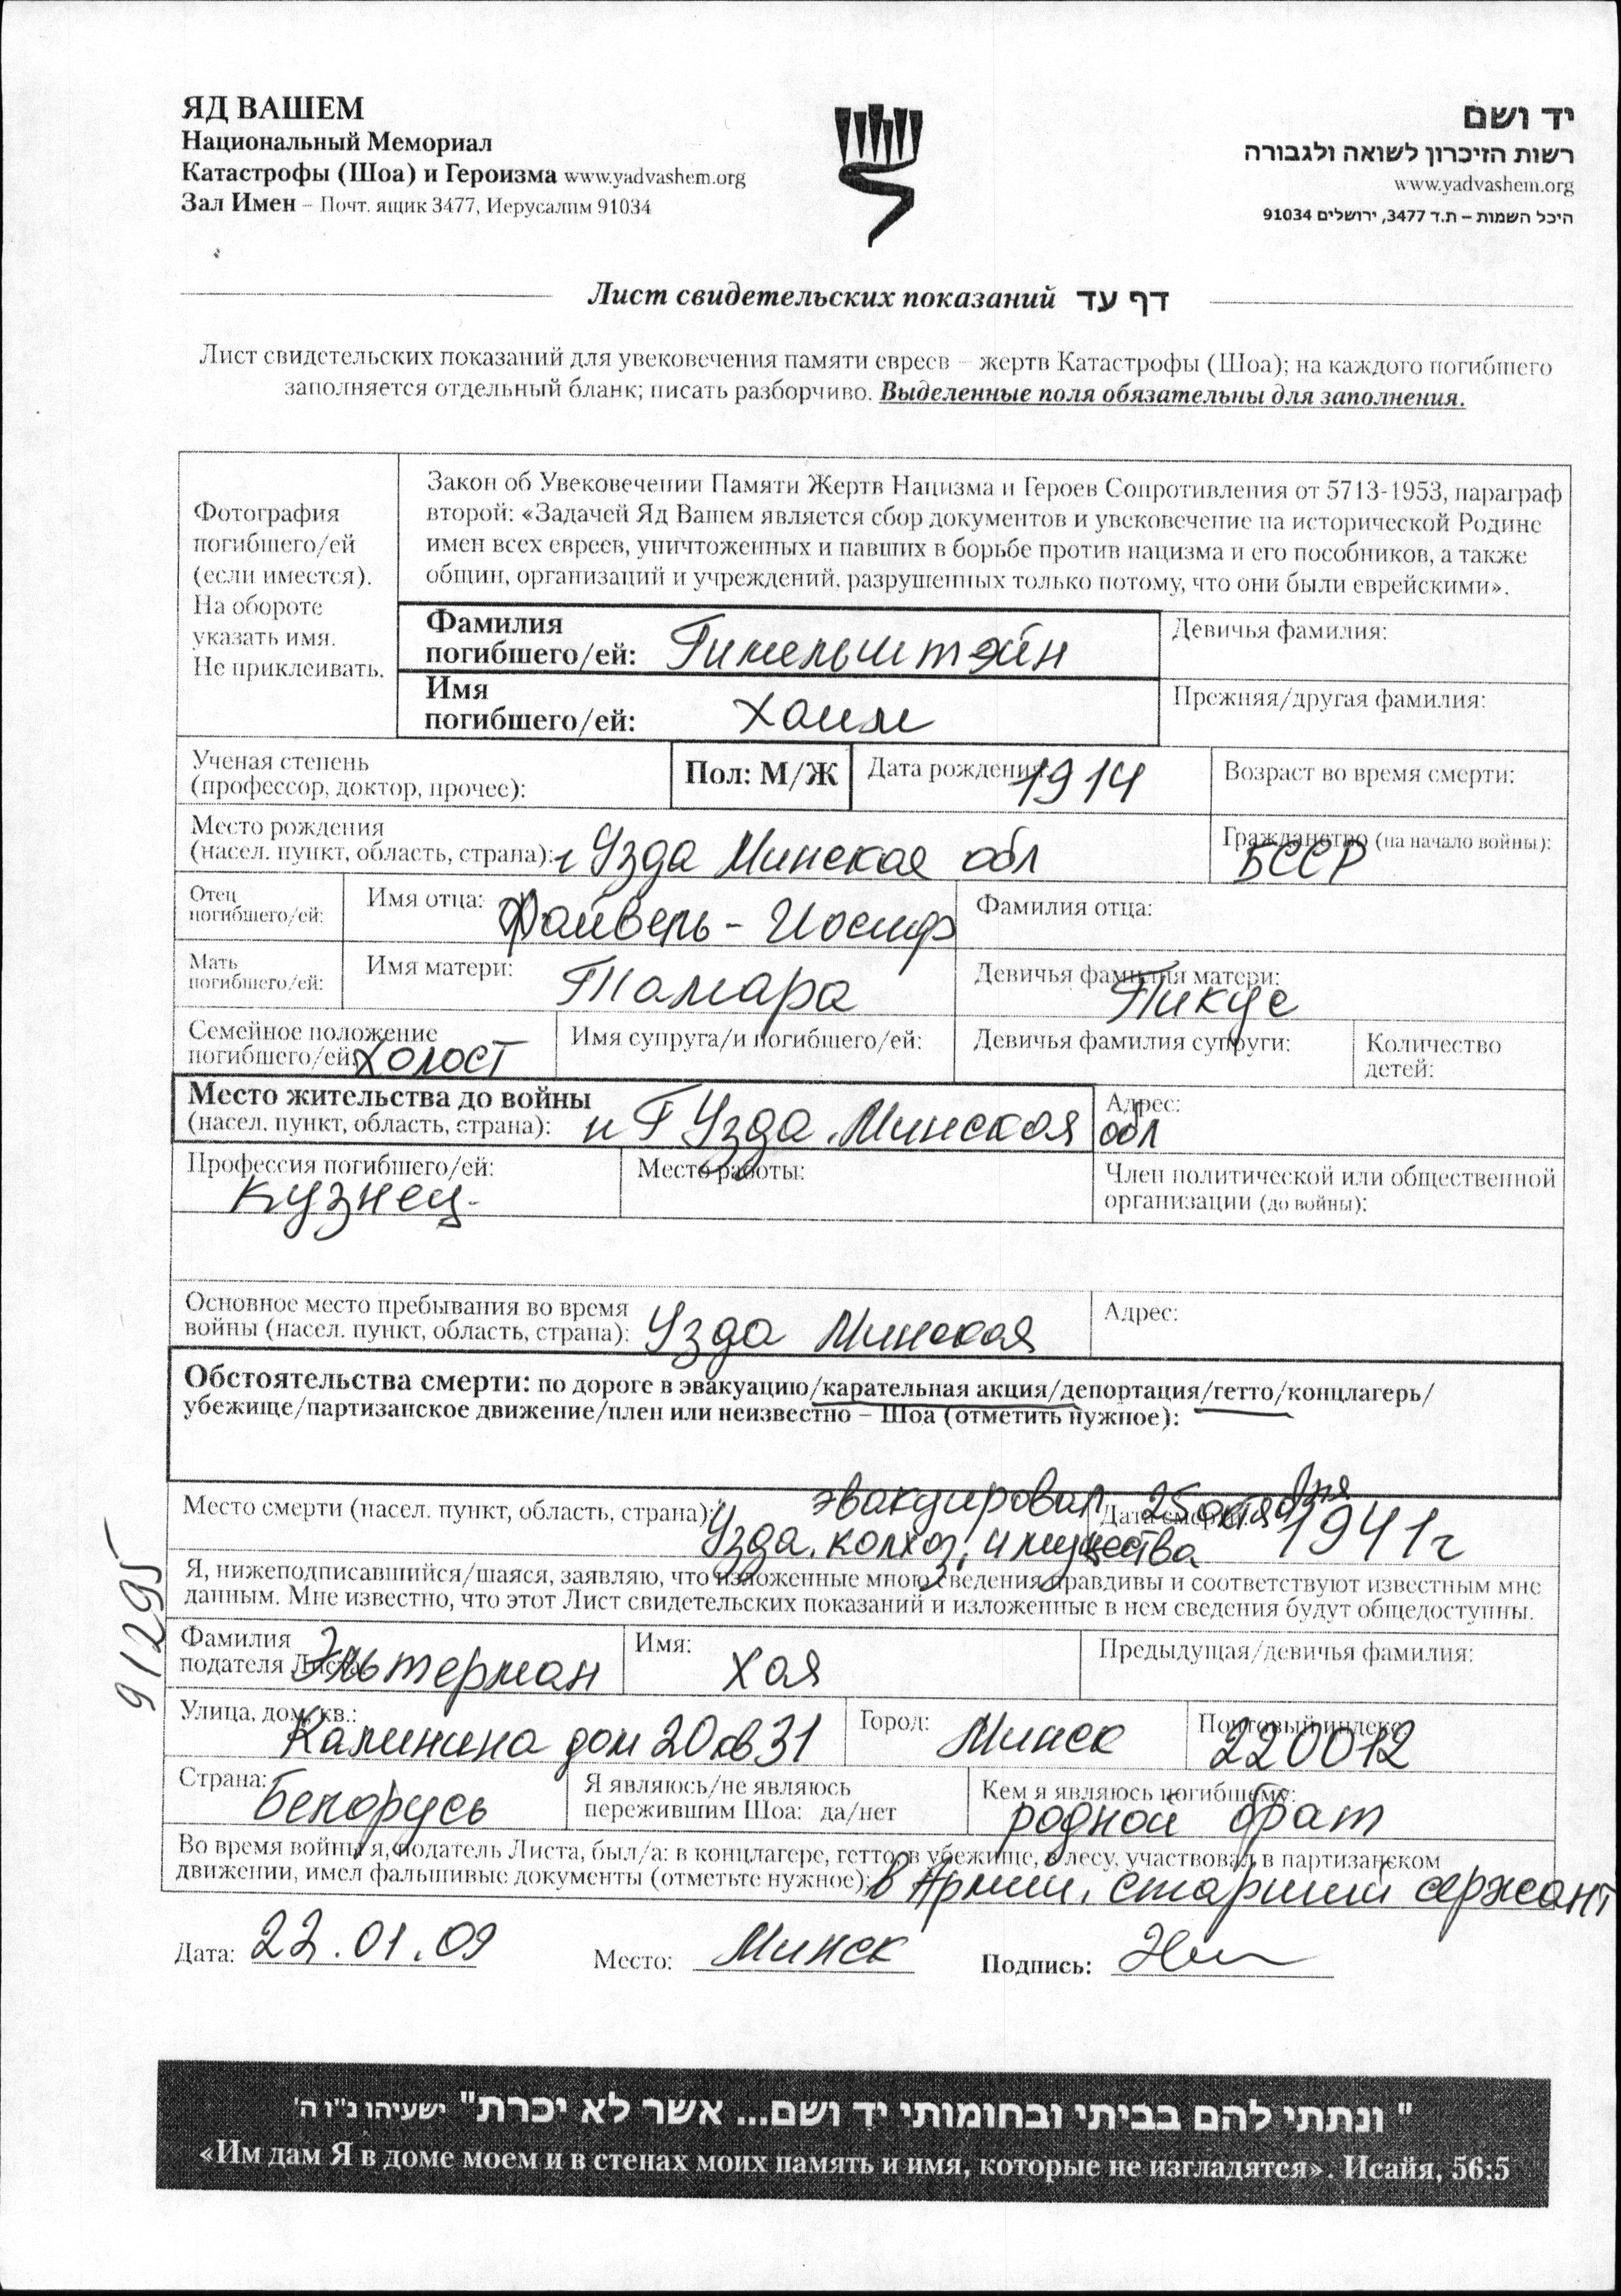 ЯД ВАШЕМ
Национальный Мемориал
Катастрофы (Шоа) и Героизма www.yadvashem.org
Зал Имен – Почт. ящик 3477, Иерусалим 91034
יד ושם
רשות הזיכרון לשואה ולגבורה
www.yadvashem.org
היכל השמות – ת.ד 3477, ירושלים 91034
Лист свидетельских показаний דף עד
Лист свидетельских показаний для увековечения памяти евреев – жертв Катастрофы (Шоа); на каждого погибшего
заполняется отдельный бланк; писать разборчиво. Выделенные поля обязательны для заполнения.
Фотография
погибшего/ей
(если имеется).
На обороте
указать имя.
Не приклеивать.
Закон об Увековечении Памяти Жертв Нацизма и Героев Сопротивления от 5713-1953, параграф
второй: «Задачей Яд Вашем является сбор документов и увековечение на исторической Родине
имен всех евреев, уничтоженных и павших в борьбе против нацизма и его пособников, а также
общин, организаций и учреждений, разрушенных только потому, что они были еврейскими».
Фамилия
погибшего/ей: Гимельштэйн
Девичья фамилия:
Имя
погибшего/ей: Хаим
Прежняя/другая фамилия:
Ученая степень
(профессор, доктор, прочее):
Пол: М/Ж
Дата рождения: 1914
Возраст во время смерти:
Место рождения
(насел. пункт, область, страна): г Узда Минская обл
Гражданство (на начало войны):
БССР
Отец
погибшего/ей:
Имя отца: Файвель - Иосиф
Фамилия отца:
Мать
погибшего/ей:
Имя матери: Тамара
Девичья фамилия матери:
Пикус
Семейное положение
погибшего/ей: Холост
Имя супруга/и погибшего/ей:
Девичья фамилия супруги:
Количество
детей:
Место жительства до войны
(насел. пункт, область, страна): Узда Минская
Адрес:
обл
Профессия погибшего/ей:
кузнец
Место работы:
Член политической или общественной
организации (до войны):
Основное место пребывания во время
войны (насел. пункт, область, страна): Узда Минская
Адрес:
Обстоятельства смерти: по дороге в эвакуацию/карательная акция/депортация/гетто/концлагерь/
убежище/партизанское движение/плен или неизвестно – Шоа (отметить нужное):
эвакуировал
Место смерти (насел. пункт, область, страна):
Узда, колхоз. имущества
Дата смерти: 25 октября
1941г
Я, нижеподписавшийся/шаяся, заявляю, что изложенные мною сведения правдивы и соответствуют известным мне
данным. Мне известно, что этот Лист свидетельских показаний и изложенные в нем сведения будут общедоступны.
Фамилия
подателя Листа: Эльтерман
Имя:
Хая
Предыдущая/девичья фамилия:
Улица, дом, кв.:
Калинина дом 20 кв 31
Город: Минск
Почтовый индекс:
220012
Страна:
Белорусь
Я являюсь/не являюсь
пережившим Шоа: да/нет
Кем я являюсь погибшему:
родной брат
Во время войны я, податель Листа, был/а: в концлагере, гетто, в убежище, в лесу, участвовал в партизанском
движении, имел фальшивые документы (отметьте нужное): в Армии, старший сержант
Дата: 22.01.09
Место: Минск
Подпись:
91295
" ונתתי להם בביתי ובחומותי יד ושם... אשר לא יכרת" ישעיהו נ"ו ה'
«Им дам Я в доме моем и в стенах моих память и имя, которые не изгладятся». Исайя, 56:5